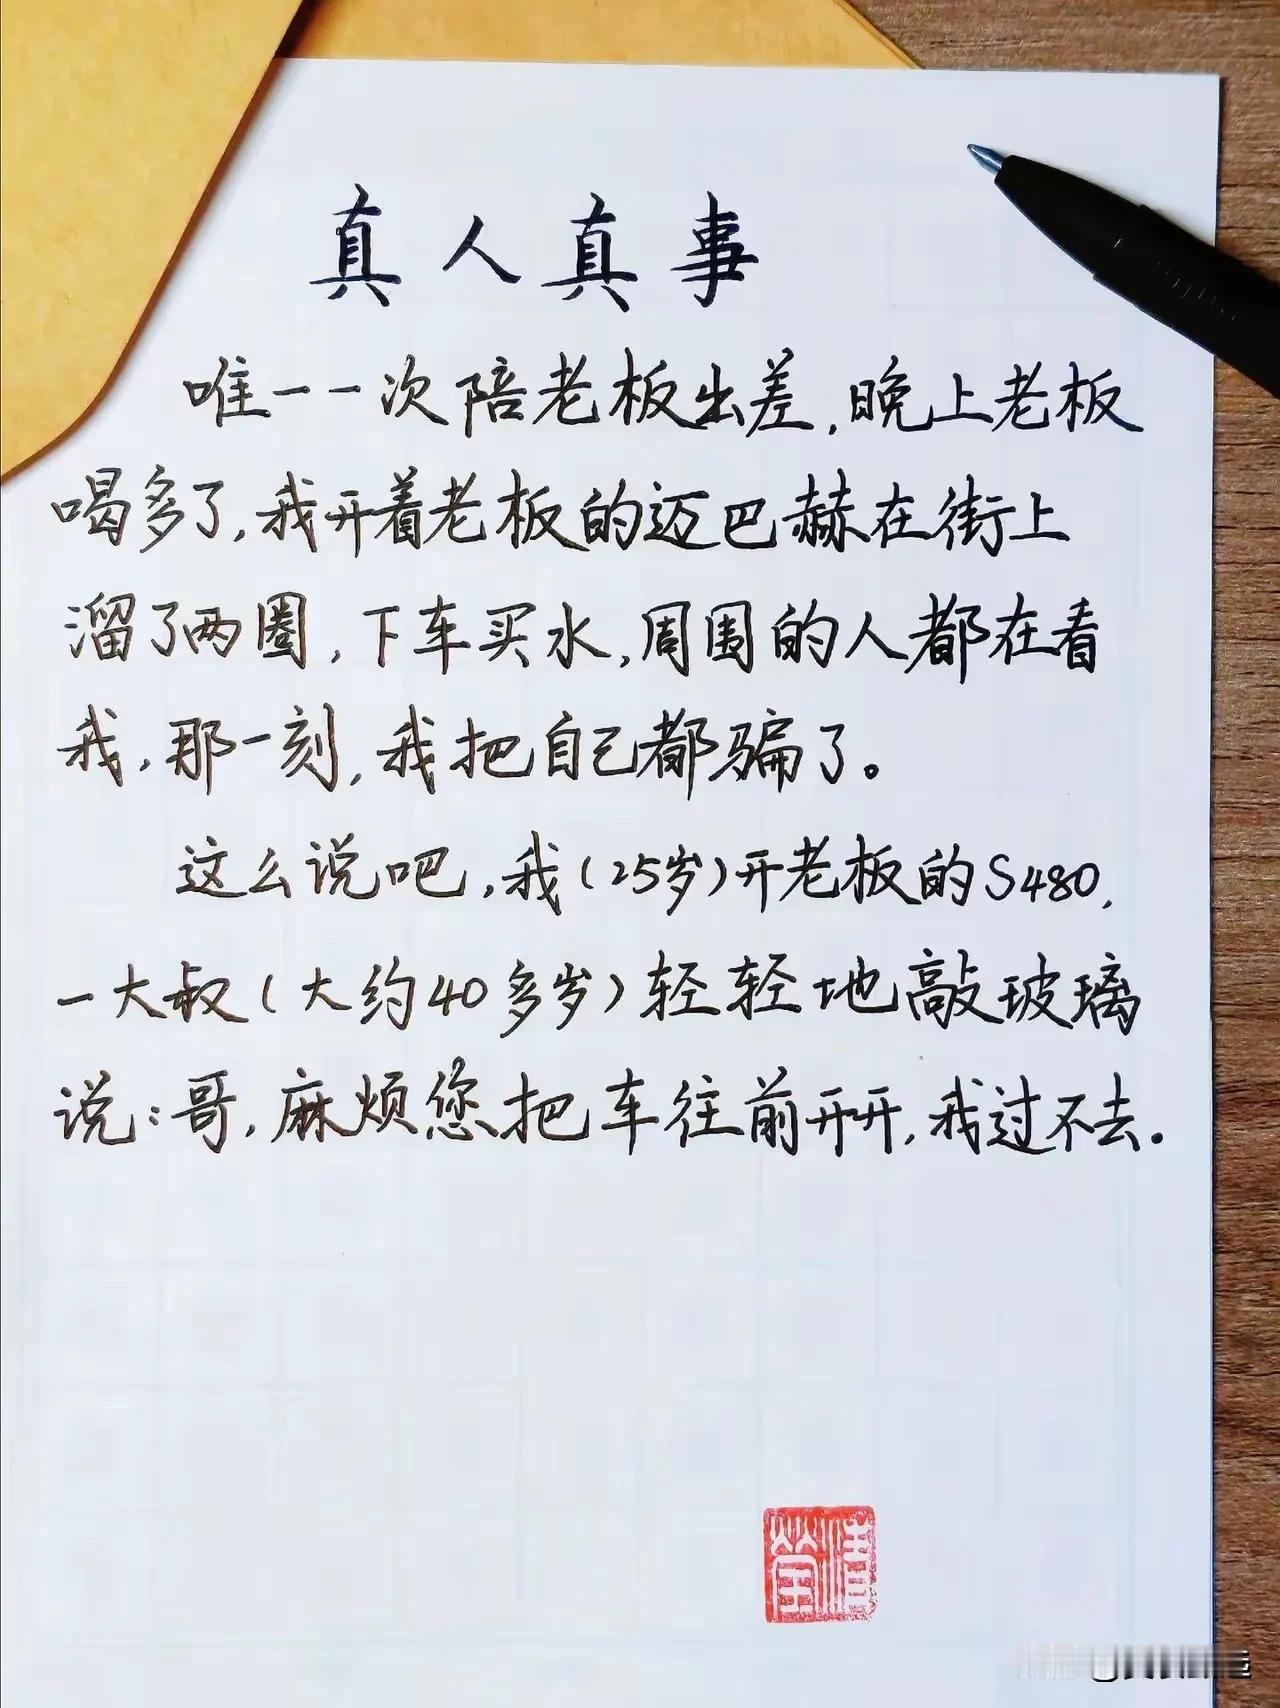 真人真事
唯一一次陪老板出差,晚上老板
喝多了,我开着老板的迈巴赫在街上
溜了两圈,下车买水,周围的人都在看
我,那一刻,我把自己都骗了。
这么说吧,我(25岁)开老板的S480,
一大叔(大约40多岁)轻轻地敲玻璃
说:哥,麻烦您把车往前开开,我过不去.